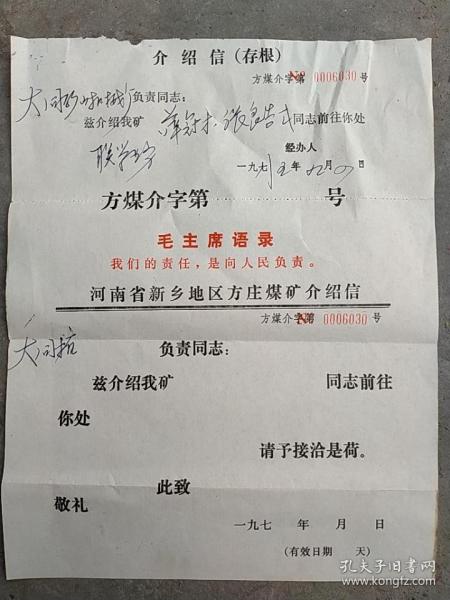 介绍信(存根)
方煤介字第 № 0006030 号
大同矿山机械厂负责同志:
兹介绍我矿 同志前往你处
联 经办人
一九七五年 九月 日
方煤介字第 号
毛主席语录
我们的责任,是向人民负责。
河南省新乡地区方庄煤矿介绍信
方煤介字第 № 0006030 号
大同 负责同志:
兹介绍我矿 同志前往
你处
请予接洽是荷。
此致
敬礼
一九七 年 月 日
(有效日期 天)
孔夫子旧书网
www.kongfz.com